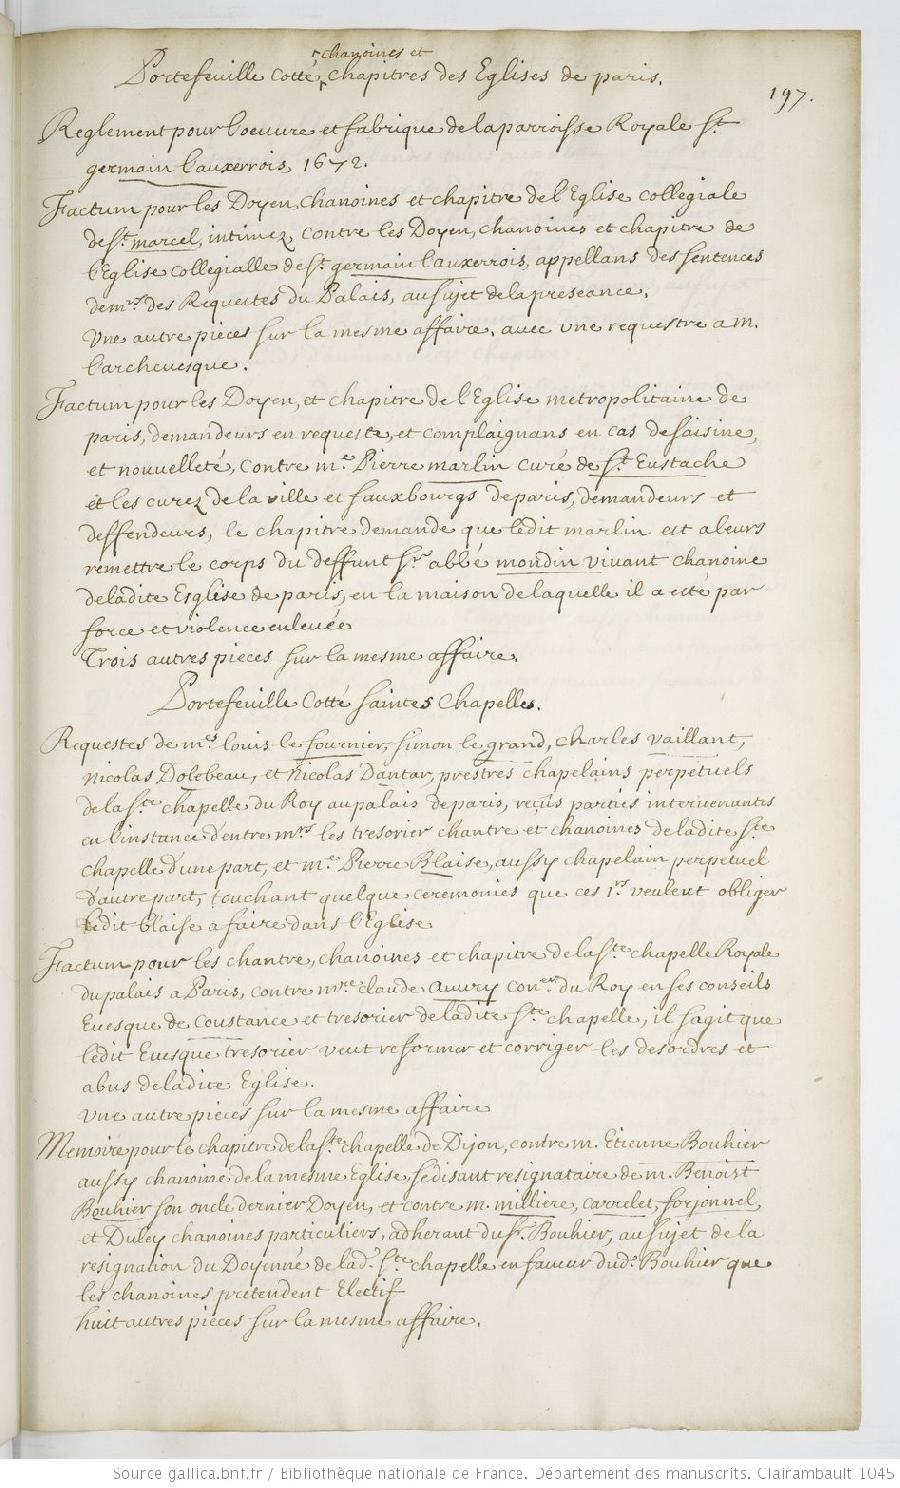 chanoines et
Portefeuille cotté chapitres des Eglises de paris.
197.
Reglement pour l'oeuure et fabrique de la parroisse Royale St
germain l'auxerrois, 1672.
Factum pour les Doyen, chanoines et chapitre de l'Eglise collegiale
de St marcel, intimez, contre les Doyen, chanoines et chapitre de
l'Eglise collegialle de St germain l'auxerrois, appellans des sentences
de mrs des Requestes du Palais, au sujet de la preseance.
Une autre pieces sur la mesme affaire, avec une requestre a m.
l'archeuesque.
Factum pour les Doyen, et chapitre de l'Eglise metropolitaine de
paris, demandeurs en requeste, et complaignans en cas de saisine,
et nouuelleté, contre me Pierre marlin curé de St Eustache
et les curez de la ville et fauxbourgs de paris, demandeurs et
deffendeurs, le chapitre demande que ledit marlin est a leurs
remettre le corps du deffunt sr abbé mondin vivant chanoine
de ladite Esglise de paris, en la maison de laquelle il a esté par
force et violence enleuée
Trois autres pieces sur la mesme affaire.
Portefeuille cotté saintes chapelles.
Requestes de mes louis le fournier, simon le grand, charles vaillant,
nicolas Dolebeau, et nicolas Dantar, prestres chapelains perpetuels
de la ste chapelle du Roy au palais de paris, reçus parties intervenantes
en l'instance d'entre mrs les tresorier chantre et chanoines de ladite ste
chapelle d'une part, et me Pierre Blaise, aussy chapelain perpetuel
d'autre part, touchant quelque ceremonies que ces 1rs veulent obliger
ledit blaise a faire dans l'Eglise
Factum pour les chantre, chanoines et chapitre de la ste chapelle Royale
du palais a Paris, contre mre claude auvry coner du Roy en ses conseils
Euesque de Coustance et tresorier de ladite ste chapelle, il s'agit que
ledit Euesque tresorier veut reformer et corriger les desordres et
abus de ladite Eglise.
Une autre pieces sur la mesme affaire
Memoire pour le chapitre de la ste chapelle de Dijon, contre m. Etienne Bouhier
aussy chanoine de la mesme Eglise, se disant resignataire de m. Benoist
Bouhier son oncle dernier Doyen, et contre m. milliere, carrelet, forjonnel,
et Duley chanoines particuliers, adherant du sr. Bouhier, au sujet de la
resignation du Doyenné de lad. ste chapelle en faueur dud. Bouhier que
les chanoines pretendent Electif
huit autres pieces sur la mesme affaire.
Source gallica.bnf.fr / Bibliothèque nationale de France. Département des manuscrits. Clairambault 1045